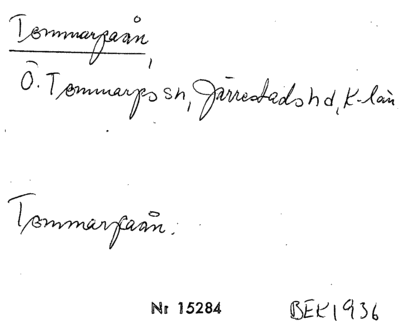 Tommarpaån,
Ö. Tommarps sn, Järrestads hd, K-län
Tommarpaån.
Nr 15284 BEK 1936